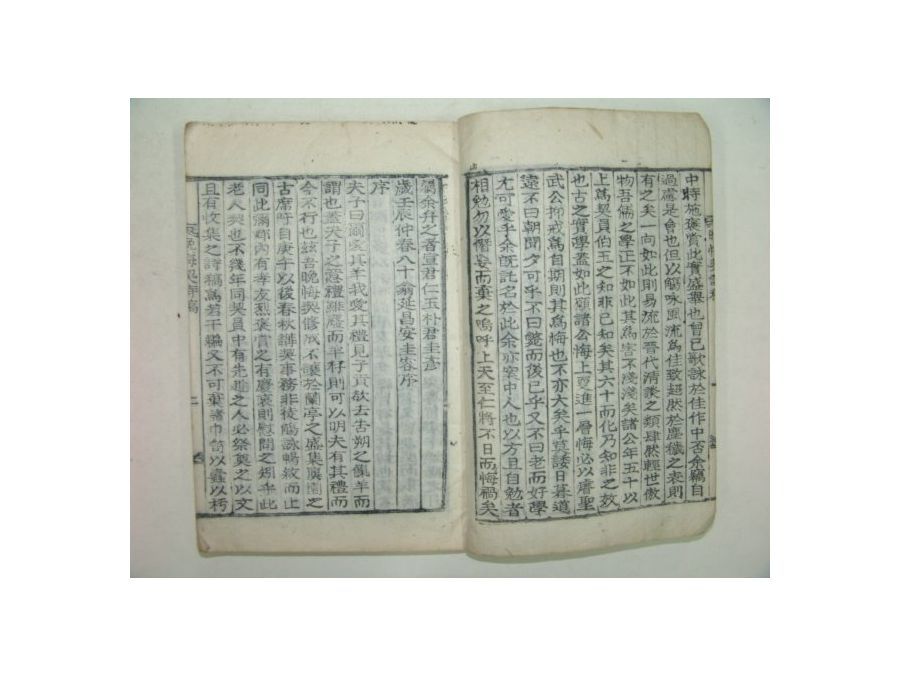 中特施褒賞此實盛擧也曾已歌詠於佳作中否余竊自
過慮是會也但以觴咏風流爲佳致超然於塵穢之表則
有之矣一向如此則易流於晉代清談之類肆然輕世傲
物吾儒之學正不如此其爲害不淺淺矣諸公年五十以
上爲契員伯玉之知非已知矣其六十而化乃知非之效
也古之實學蓋如此願諸公悔上更進一層悔必以唐聖
武公抑戒爲自期則其爲悔也不亦大矣乎莫諉日暮道
遠不曰朝聞夕可乎不曰斃而後已乎又不曰老而好學
尤可愛乎余既託名於此余亦案中人也以方且自勉者
相勉勿以僭妄而棄之嗚呼上天至仁將不日而悔禍矣
屬余弁之者宣君仁玉朴君圭彦
歲壬辰仲春八十翁延昌安圭容序
序
夫子曰爾愛其羊我愛其禮見子貢欲去告朔之餼羊而
謂也蓋夫子之意禮雖廢而羊存則可以明夫有其禮而
今不行也玆吾晩悔契修成不讓於蘭亭之盛集與園之
古席呼自庚午以後春秋講契事務非徒觴詠暢敘而止
同此鄕郡內有孝友烈褒賞之有廢喪則慰問之矧乎此
老人契也不幾年同契員中有先逝之人必祭奠之以文
且有收集之詩稿爲若干編又不可棄諸巾笥以蠹以朽
晩悔契詩稿